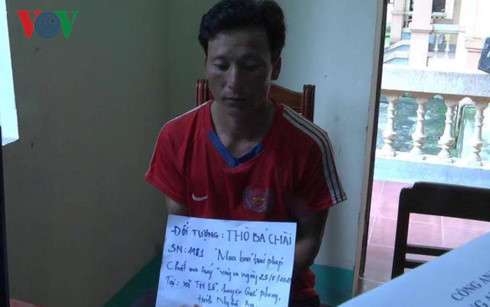 VOV
ĐỐI TƯỢNG: THÒ BÁ CHÀI
SN: 1981 "Mua bán trái phép
Chất ma túy" ngày 25/5
Tại: xã Tri Lễ, huyện Quế Phong,
tỉnh Nghệ An
CÔNG AN